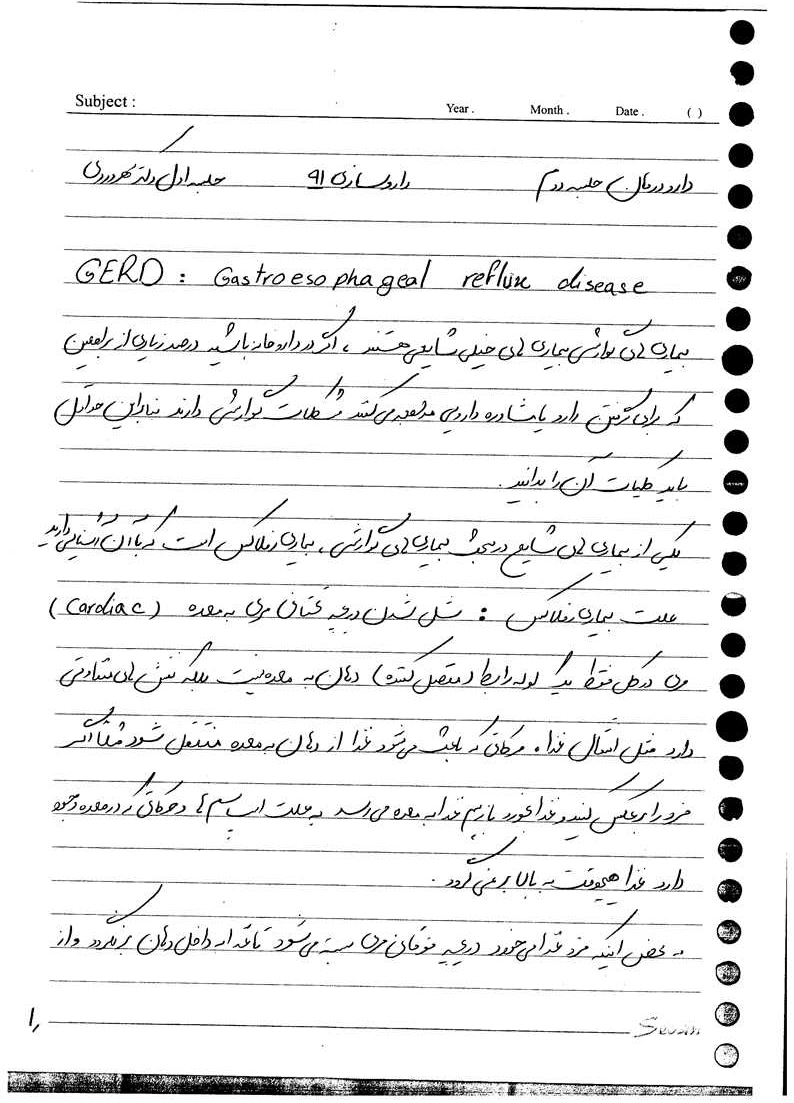 Subject :
Year . Month . Date . ( )
دارودرمان جلسه دوم داروسازی 91 جلسه اول دکتر
GERD : Gastroesophageal reflux disease
بیماری های گوارشی بیماری های خیلی شایعی هستند ، اگر در داروخانه باشید درصد زیادی از مراجعین
که برای گرفتن دارو یا مشاوره دارویی مراجعه می کنند مشکلات گوارشی دارند بنابراین حداقل
باید کلیات آن را بدانید .
یکی از بیماری های شایع در مبحث بیماری های گوارشی ، بیماری رفلاکس است که با آن آشنایی دارید
علت بیماری رفلاکس : شل شدن دریچه تحتانی مری به معده (Cardiac)
مری در کل فقط یک لوله رابط (متصل کننده) دهان به معده نیست بلکه نقش های متفاوتی
دارد مثل انتقال غذا ، حرکاتی که باعث می شود غذا از دهان به معده منتقل شود مثلا اگر
فرد را برعکس کنید و غذا بخورد باز هم غذا به معده می رسد به علت اسپاسم ها و حرکاتی که در معده وجود
دارد غذا هیچوقت به بالا بر نمی گردد .
به محض اینکه فرد غذا می خورد دریچه فوقانی مری بسته می شود تا غذا به داخل دهان برنگردد و از
1,